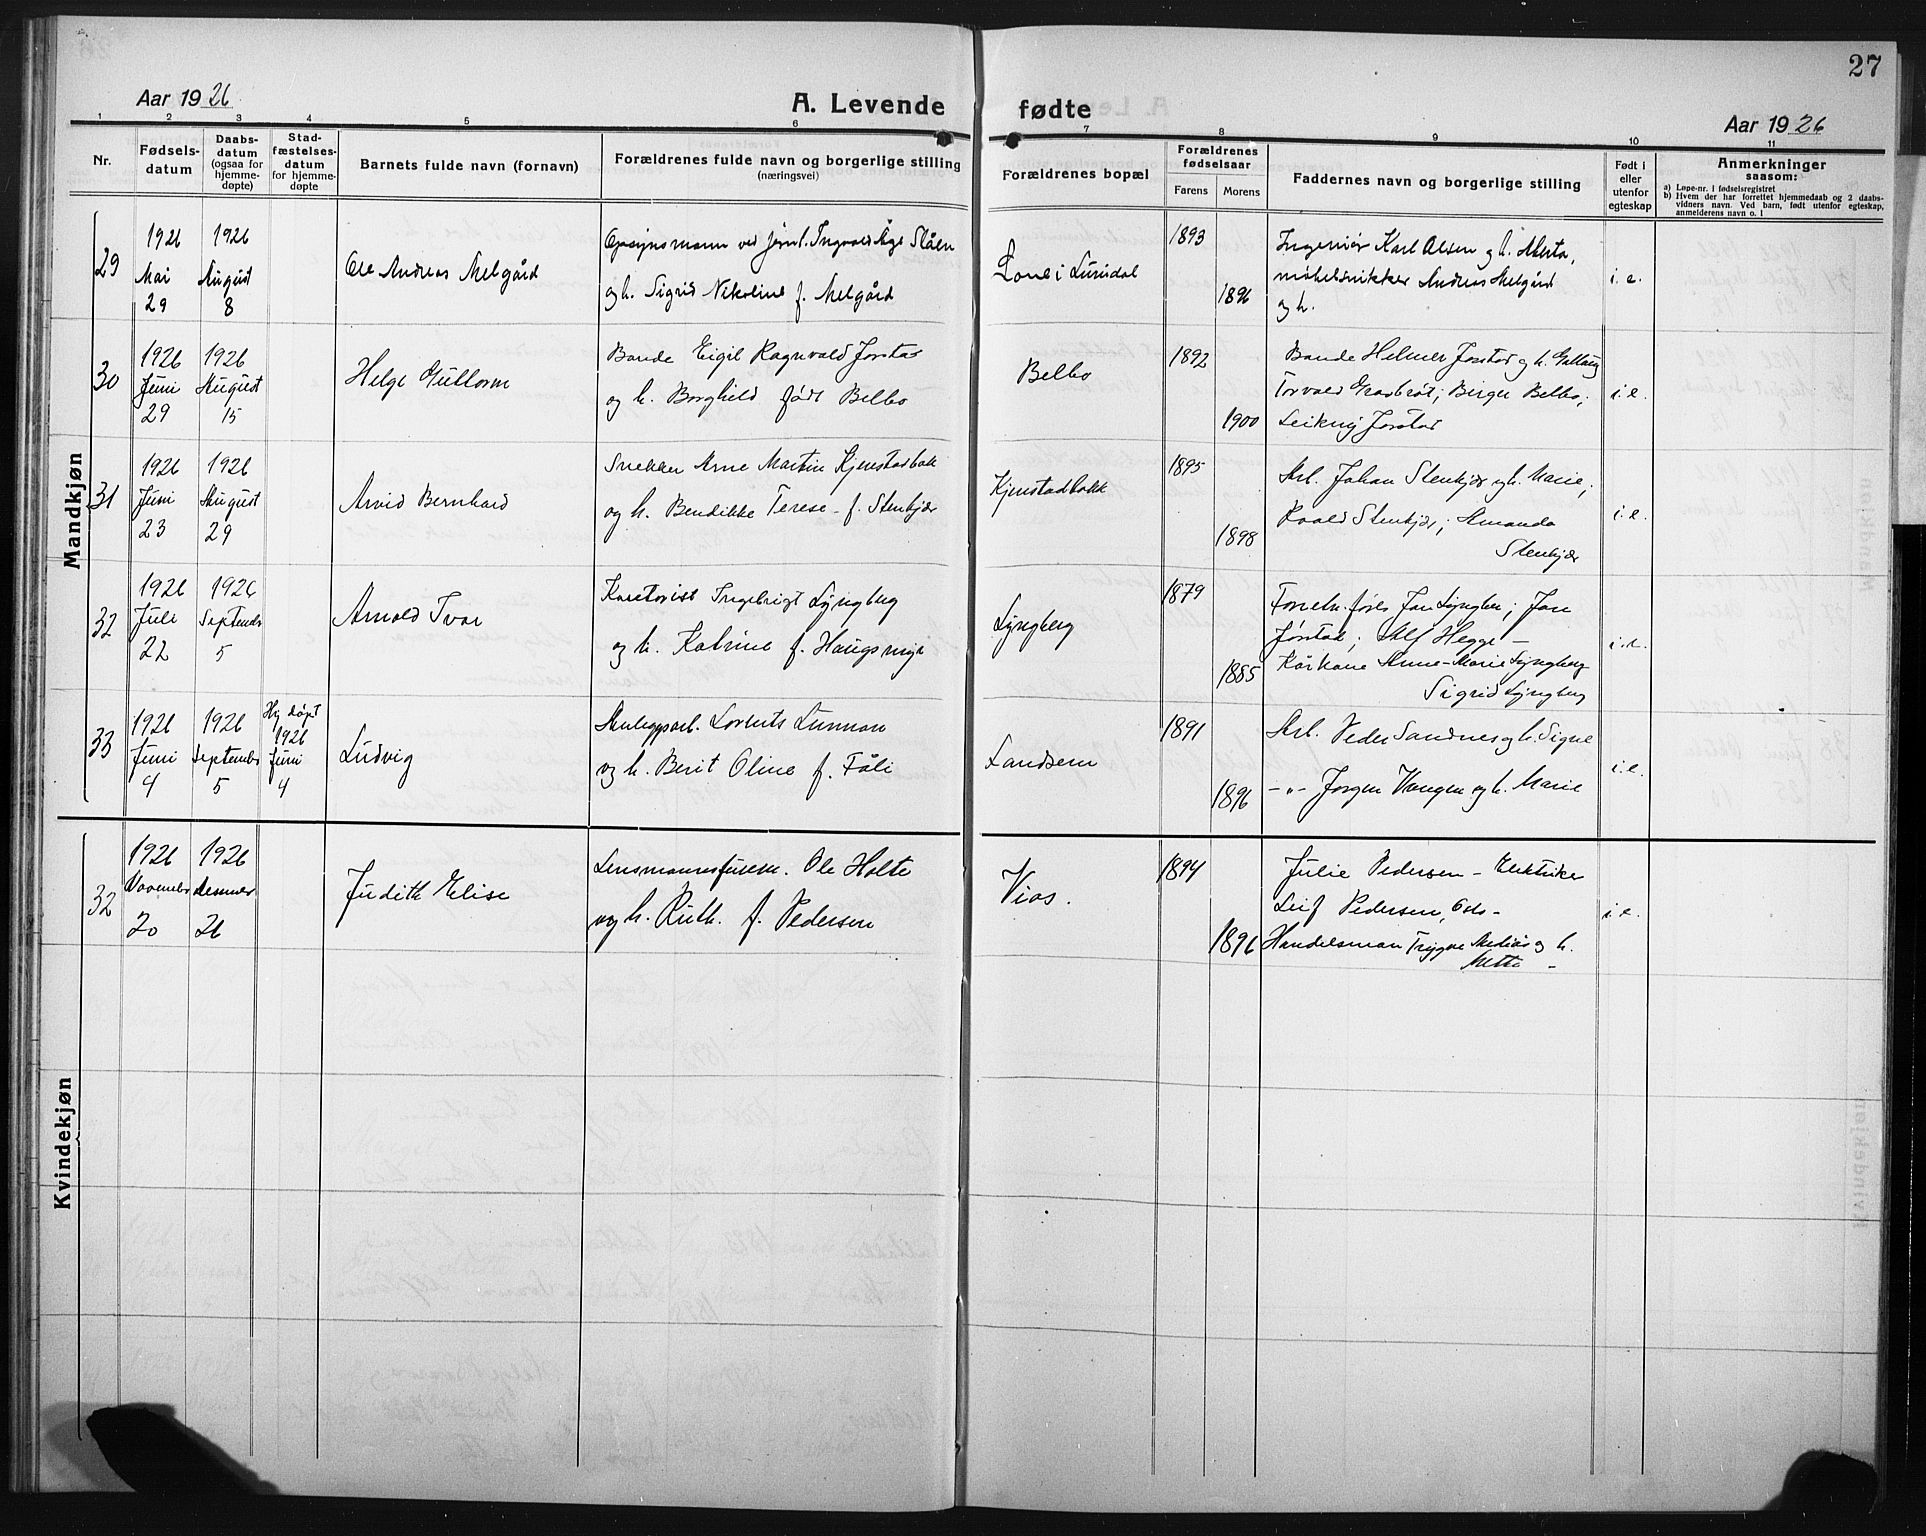 27
Aar 1926
A. Levende fødte
Aar 1926
1 2 3 4 5 6 7 8 9 10 11
Nr.
Fødsels-
datum
Daabs-
datum
(ogsaa for
hjemme-
døpte)
Stad-
fæstelses-
datum
for hjemme-
døpte
Barnets fulde navn (fornavn)
Forældrenes fulde navn og borgerlige stilling
(næringsvei)
Forældrenes bopæl
Forældrenes
fødselsaar
Farens
Morens
Faddernes navn og borgerlige stilling
Født i
eller
utenfor
egteskap
Anmerkninger
saasom:
a) Løpe-nr. i fødselsregistret
b) Hvem der har forrettet hjemmedaab og 2 daabs-
vidners navn. Ved barn, født utenfor egteskap,
anmelderens navn o. l
Mandkjøn
29
1926
Mai
29
1926
August
8
Ole Andreas Melgård
Opsynsmann ved jernb. Ingvald Åge Slåen
og h. Sigrid Nikoline f. Melgård
i Lurudal
1893
1896
Ingeniør Karl Olsen og h. Marta,
møbelsnikker Andreas Melgård
og h.
i. e.
30
1926
Juni
29
1926
August
15
Helge Guttorm
Bonde Eigil Ragnvald Jørstad
og h. Borghild født Belbo
Belbo
1892
1900
Bonde Helmer Jørstad og h.
Torvald Grasbrøt; Birger Belbo;
Jørstad
i. e.
31
1926
Juni
23
1926
August
29
Arvid Bernhard
Snekker Arne Martin Kjenstadbakk
og h. Bendikke Terese f. Stenkjær
Kjenstadbakk
1895
1898
Arb. Johan Stenkjær og h. Marie;
Roald Stenkjær; Amanda
Stenkjær
i. e.
32
1926
Juli
22
1926
September
5
Arnold Ivar
Kontorist Ingebrigt Lyngberg
og h. Katrine f. Haugsmyr
Lyngberg
1879
1885
Jan
Jørstad; Alf Hegge –
Anne-Marie Lyngberg
Sigrid Lyngberg
i. e.
33
1926
Juni
4
1926
September
5
Hj døpt
1926
Juni
4
Ludvig
Anleggsarb. Lorents Lunnan
og h. Berit Oline f. Tåli
Landsem
1891
1896
Arb. Peder Sandnes og h. Signe
–"– Jørgen Vangen og h. Marie
i. e.
Kvindekjøn
32
1926
November
20
1926
Desember
26
Judith Elise
Lensmannsfullm. Ole Holte
og h. Ruth f. Pedersen
Vios.
1894
1896
Julie Pedersen – Elektriker
Leif Pedersen, Oslo –
Handelsman Trygve Mediås og h.
Mette –
i. e.